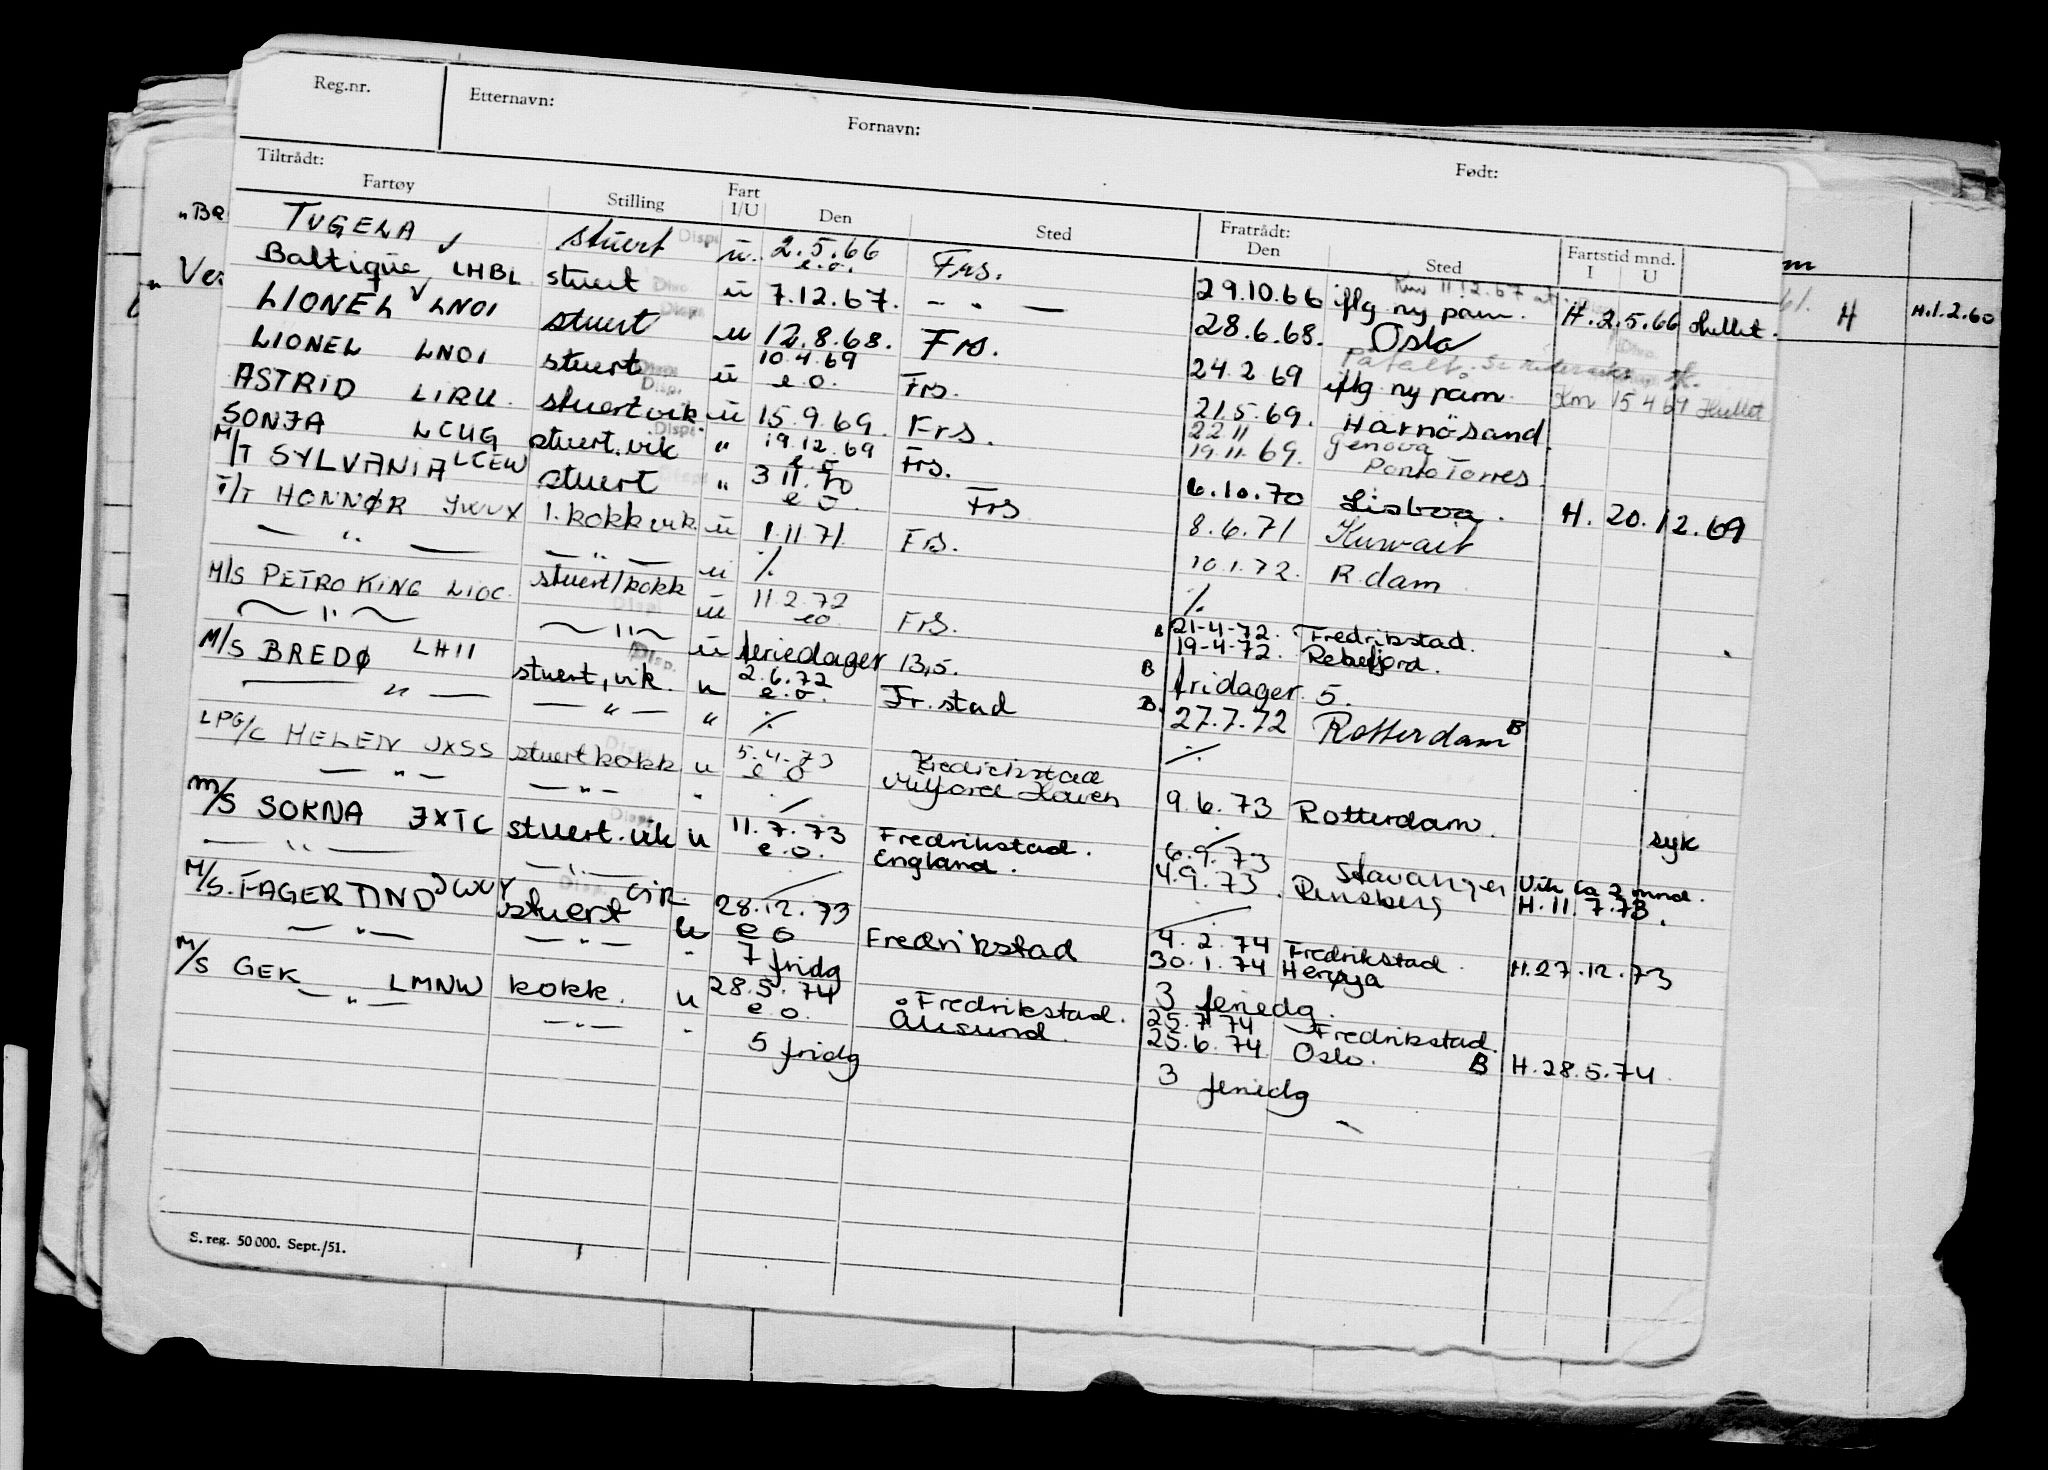 Reg.nr. Etternavn: Fornavn: Født:
Tiltrådt: Fratrådt:
Fartøy Stilling Fart I/U Den Sted Den Sted Fartstid mnd. I U
TUGELA stuert Disp. u. 2.5.66 e.o. Frs. 29.10.66 iflg ny påm. H. 2.5.66 Hullet.
Baltique LHBL stuert u 7.12.67. — " — 28.6.68. Oslo
LIONEL LNOI stuert u 12.8.68. Frs. 24.2 69 iflg ny påm.
LIONEL LNOI stuert u 10.4.69 e o. Frs. 21.5.69. Härnösand 15 4 69 Hullet
ASTRID LIRU. stuert vik. u 15.9.69. Frs. 22.11 19.11.69. Genova Porto Torres
SONJA LCUG stuert, vik " 19.12.69 e.o Frs. 6.10.70 Lisboa. H. 20.12.69
M/T SYLVANIA LCEW stuert " 3 11.70 e o. Frs 8.6.71 Kuwait
T/T HONNØR JWUX 1. kokk vik. u 1.11 71. Frs. 10.1.72. R.dam
— " — — " — u ⁒ ⁒
M/S PETRO KING LIOC. stuert/kokk u 11.2.72 eo Frs. B 21-4-72. 19-4-72. Fredrikstad. Rekefjord.
~ " ~ ~ " ~ u feriedager 13,5. B fridager 5.
M/S BREDØ LHII stuert, vik. u 2.6.72 e.o. Fr.stad B. 27.7.72 Rotterdam B
— " — — " — " ⁒ ⁒
LPG/C HELEN JXSS stuert kokk u 5.4.73 e o Fredrikstad Milford Haven 9.6.73 Rotterdam. syk
— " — — " — " ⁒ ⁒
M/S SOKNA JXTC stuert. vik u 11.7.73 e.o. Fredrikstad. England. 6.9.73 4.9.73. Stavanger Rensberg Vik ca 2 mnd. H. 11.7.73.
— " — — " —
M/S. FAGERTIND JWXY stuert u 28.12.73 e o Fredrikstad 4.2.74 30.1.74 Fredrikstad. Herøya H. 27.12.73
— " — — " — " 7 fridg 3 feriedg.
M/S GEK LMNW kokk. u 28.5.74 e.o. Fredrikstad. Ålesund. 25.7.74 25.6.74 Fredrikstad. Oslo. B H. 28.5.74.
— " — — " — " 5 fridg 3 feriedg
S. reg. 50 000. Sept./51.
"Ba
" Ver
m
61. H H.1.2.60